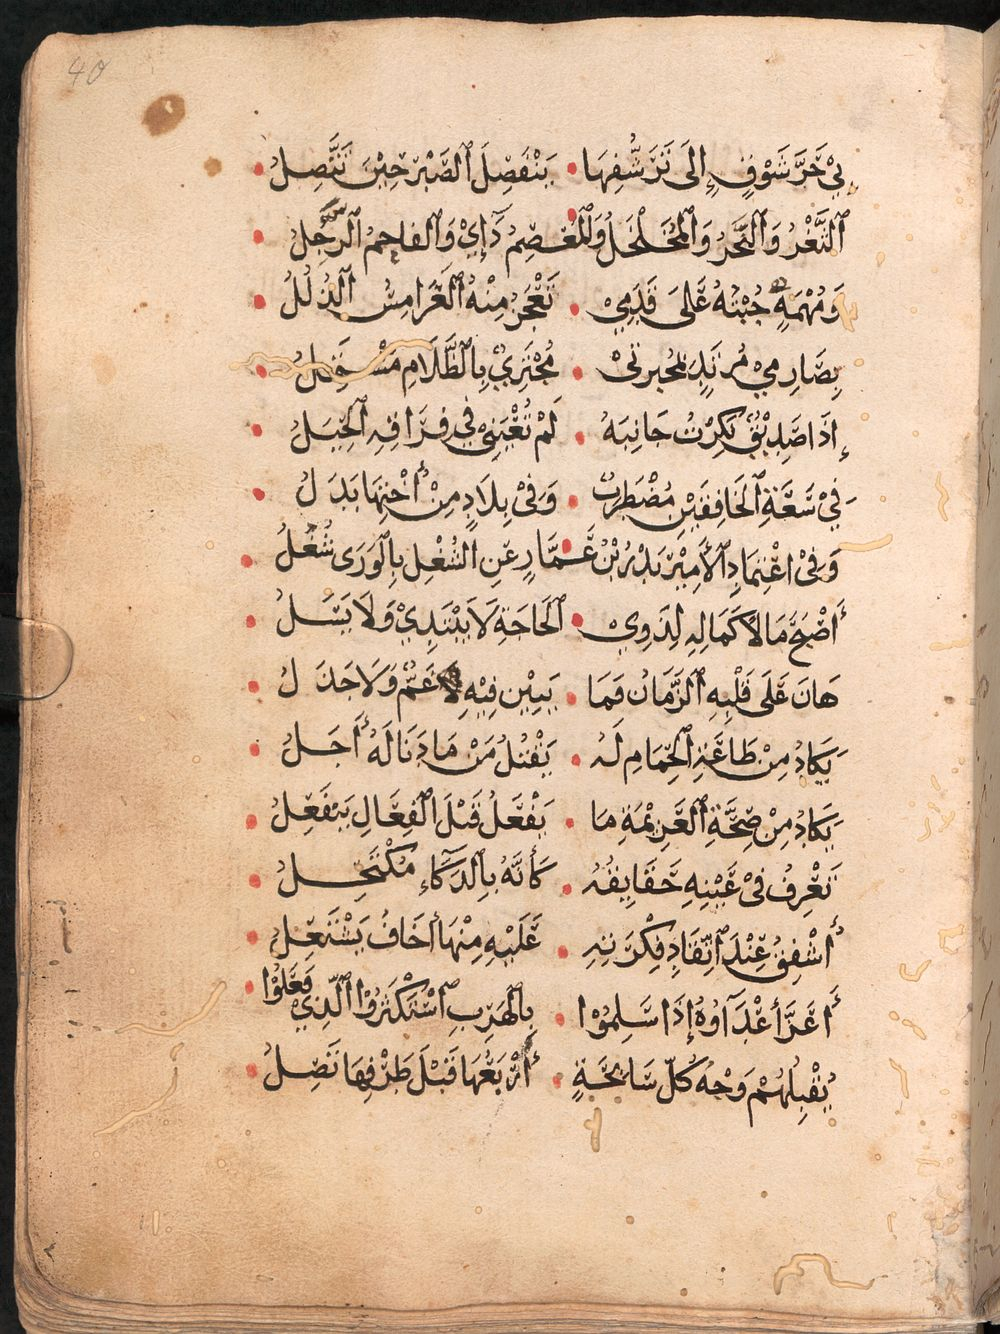 40
بِيْ حَرُّ شَوْقٍ إِلَى تَرَشُّفِهَا • يَنْفَصِلُ ٱلصَّبْرُ حِيْنَ تَتَّصِلُ •
ٱلثَّغْرُ وَٱلنَّحْرُ وَٱلْمُخَلْخَلُ وَٱلْمِعْصَمُ • دَآئِيْ وَٱلفَاحِمُ ٱلرَّجِلُ •
وَمَهْمَهٍ جُبْتُهُ عَلَى قَدَمِيْ • تَعْجَزُ مِنْهُ ٱلْعَرَامِسُ ٱلذُّلُلُ •
بِصَارِمِيْ مُرْتَدٍ بِمَخْبُرَتِيْ • مُجْتَزِئٌ بِٱلظَّلَامِ مُشْتَمِلُ •
إِذَا صَدِيْقٌ نَكِرْتُ جَانِبَهُ • لَمْ تُعْيِنِيْ فِي فِرَاقِهِ ٱلْحِيَلُ •
فِيْ سَعَةِ ٱلْخَافِقَيْنِ مُضْطَرَبٌ • وَفِيْ بِلَادٍ مِنْ أُخْتِهَا بَدَلُ •
وَفِيْ اعْتِمَادِ ٱلْأَمِيْرِ بَدْرِ بْنِ عَمَّارٍ • عَنِ الشُّغْلِ بِٱلْوَرَى شُغُلُ •
أَصْبَحَ مَالًا كَمَالِهِ لِذَوِيْ • ٱلْحَاجَةِ لَا يَبْتَدِيْ وَلَا يَسَلُ •
هَانَ عَلَى قَلْبِهِ ٱلزَّمَانُ فَمَا • يَبِيْنُ فِيْهِ غَمٌّ وَلَا جَذَلُ •
يَكَادُ مِنْ طَاعَةِ ٱلْحِمَامِ لَهُ • يَقْتُلُ مَنْ مَا دَنَا لَهُ أَجَلُ •
يَكَادُ مِنْ صِحَّةِ ٱلْعَزِيْمَةِ مَا • يَفْعَلُ قَبْلَ ٱلْفِعَالِ يَنْفَعِلُ •
تَعْرِفُ فِيْ عَيْنِهِ حَقَايِقَهُ • كَأَنَّهُ بِٱلذَّكَآءِ مُكْتَحِلُ •
أُشْفِقُ عِنْدَ ٱتِّقَادِ فِكْرَتِهِ • عَلَيْهِ مِنْهَا أَخَافُ يَشْتَعِلُ •
أَغَرُّ أَعْدَآؤُهُ إِذَا سَلِمُوْا • بِٱلْهَرَبِ ٱسْتَكْثَرُوْا ٱلَّذِيْ فَعَلُوْا •
يُقْبِلُهُمْ وَجْهَ كُلِّ سَابِحَةٍ • أَرْبَعُهَا قَبْلَ طَرْفِهَا تَصِلُ •